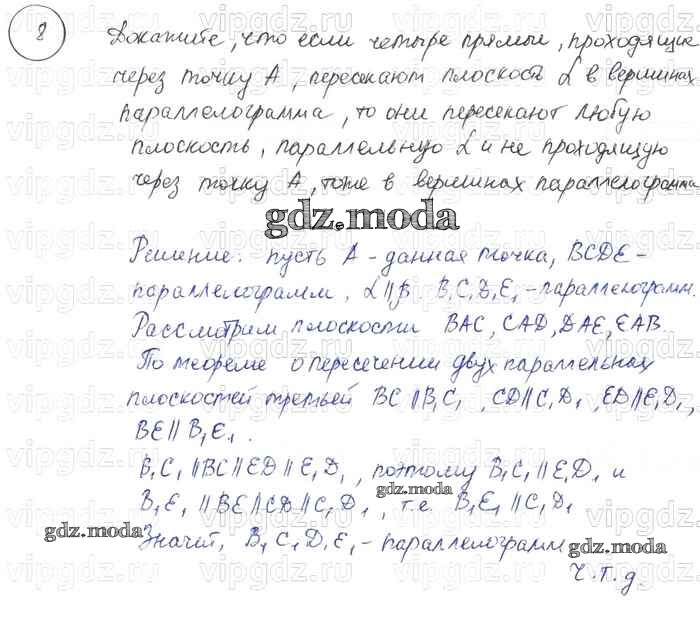 8
Докажите, что если четыре прямые, проходящие
через точку А, пересекают плоскость α в вершинах
параллелограмма, то они пересекают любую
плоскость, параллельную α и не проходящую
через точку А, тоже в вершинах параллелограмма
gdz.moda
Решение: пусть А - данная точка, BCDE -
параллелограмм, α∥β B₁C₁D₁E₁ - параллелограмм.
Рассмотрим плоскости BAC, CAD, DAE, EAB.
По теореме о пересечении двух параллельных
плоскостей третьей BC∥B₁C₁, CD∥C₁D₁, ED∥E₁D₁,
BE∥B₁E₁.
B₁C₁∥BC∥ED∥E₁D₁, поэтому B₁C₁∥E₁D₁ и
gdz.moda
B₁E₁∥BE∥CD∥C₁D₁, т.е B₁E₁∥C₁D₁
gdz.moda
Значит, B₁C₁D₁E₁ - параллелограмм
gdz.moda
ч.т.д.